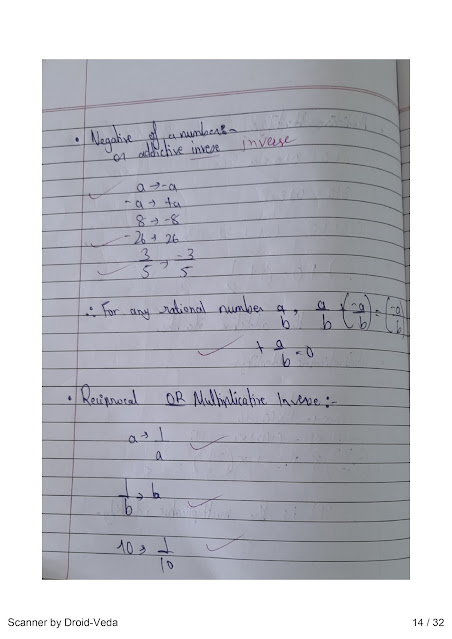 • Negative of a number:-
or addictive invese inverse
a → -a
-a → +a
8 → -8
-26 + 26
3/5 → -3/5
∴ For any rational number a/b, a/b + (-a/b) = (-a/b)
+ a/b = 0
• Reciprocal OR Multiplicative Inverse:-
a → 1/a
1/b → b
10 → 1/10
Scanner by Droid-Veda
14 / 32